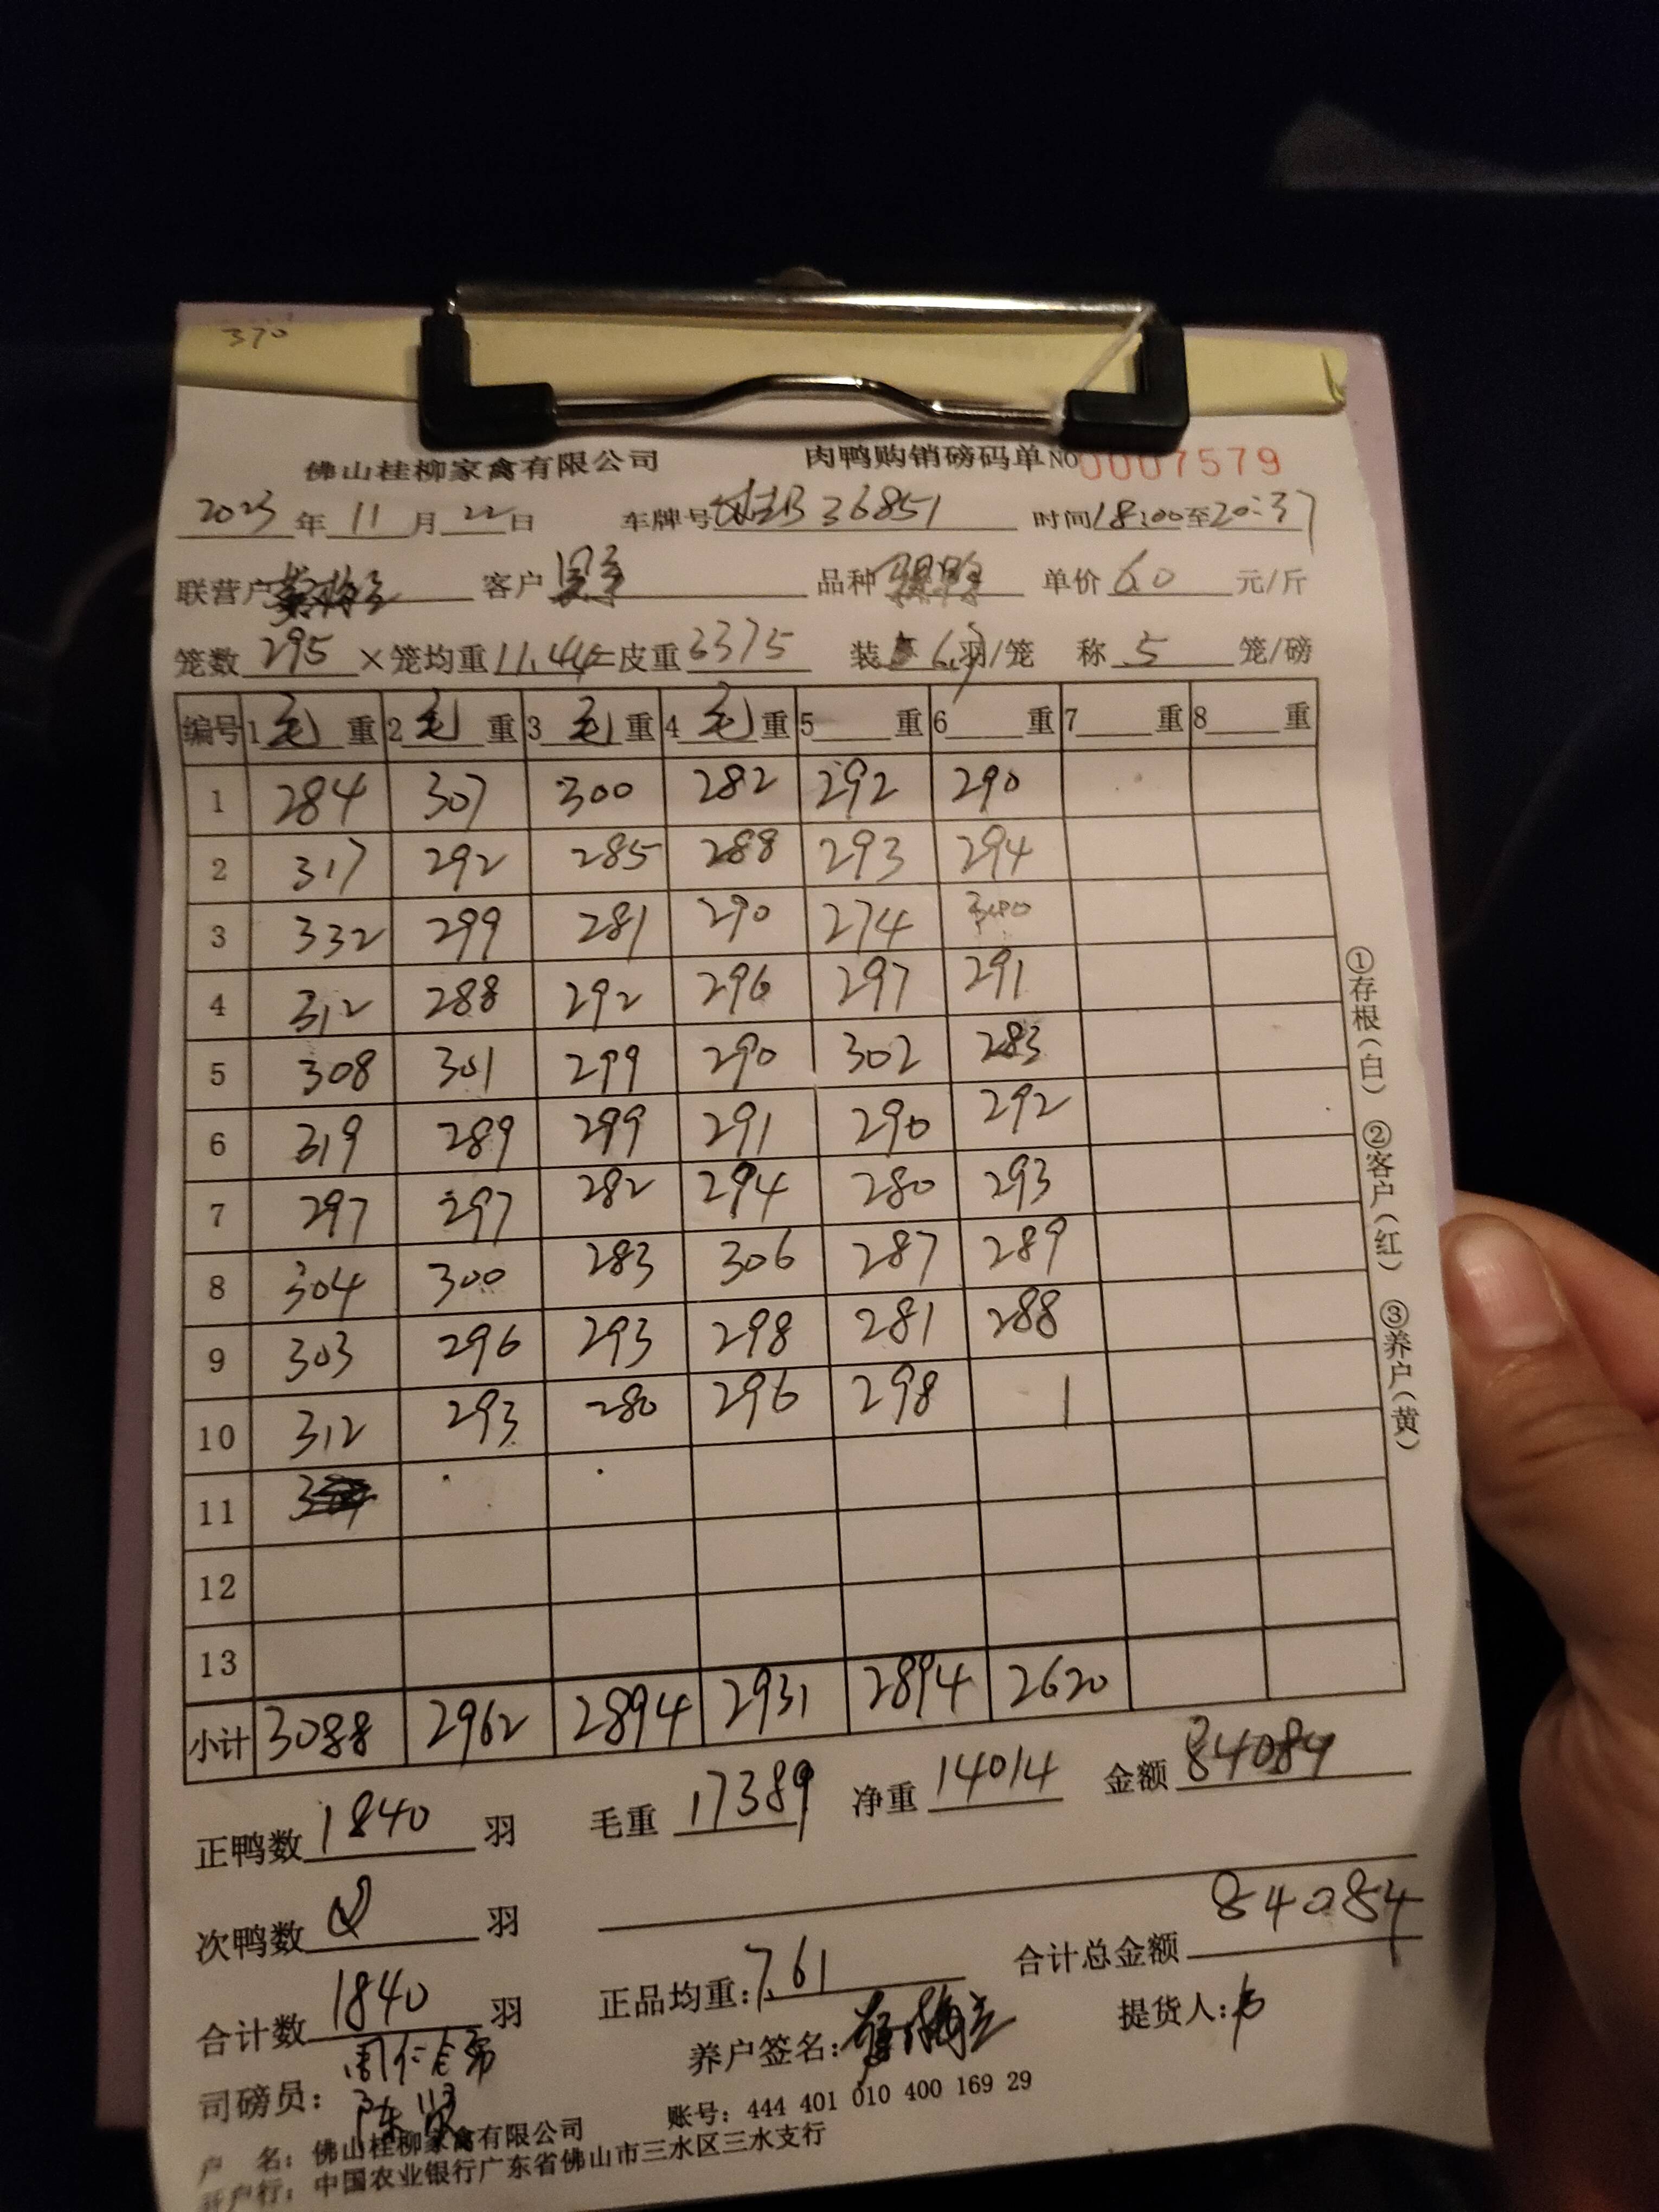 370
佛山桂柳家禽有限公司 肉鸭购销磅码单NO 0007579
2023年11月22日 车牌号 36851 时间18:00至20:37
联营户 客户 品种 单价6.0元/斤
笼数295×笼均重11.44=皮重3375 装6羽/笼 称5笼/磅
编号 1毛重 2毛重 3毛重 4毛重 5重 6重 7重 8重
1 284 307 300 282 292 290
2 317 292 285 288 293 294
3 332 299 281 290 274
4 312 288 292 296 297 291
5 308 301 299 290 302 283
6 319 289 299 291 290 292
7 297 297 282 294 280 293
8 304 300 283 306 287 289
9 303 296 293 298 281 288
10 312 293 280 296 298
11
12
13
小计 3088 2962 2894 2931 2894 2620
①存根(白) ②客户(红) ③养户(黄)
正鸭数1840羽 毛重17389 净重14014 金额84084
次鸭数 羽
合计数1840羽 正品均重:7.61 合计总金额84084
司磅员: 养户签名: 提货人:
户 名:佛山桂柳家禽有限公司 账号:444 401 010 400 169 29
开户行:中国农业银行广东省佛山市三水区三水支行